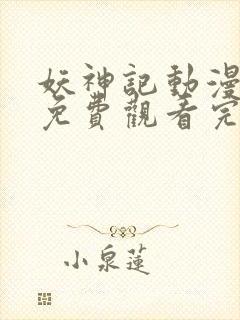 妖神記動漫
免費觀看完
小泉蓮